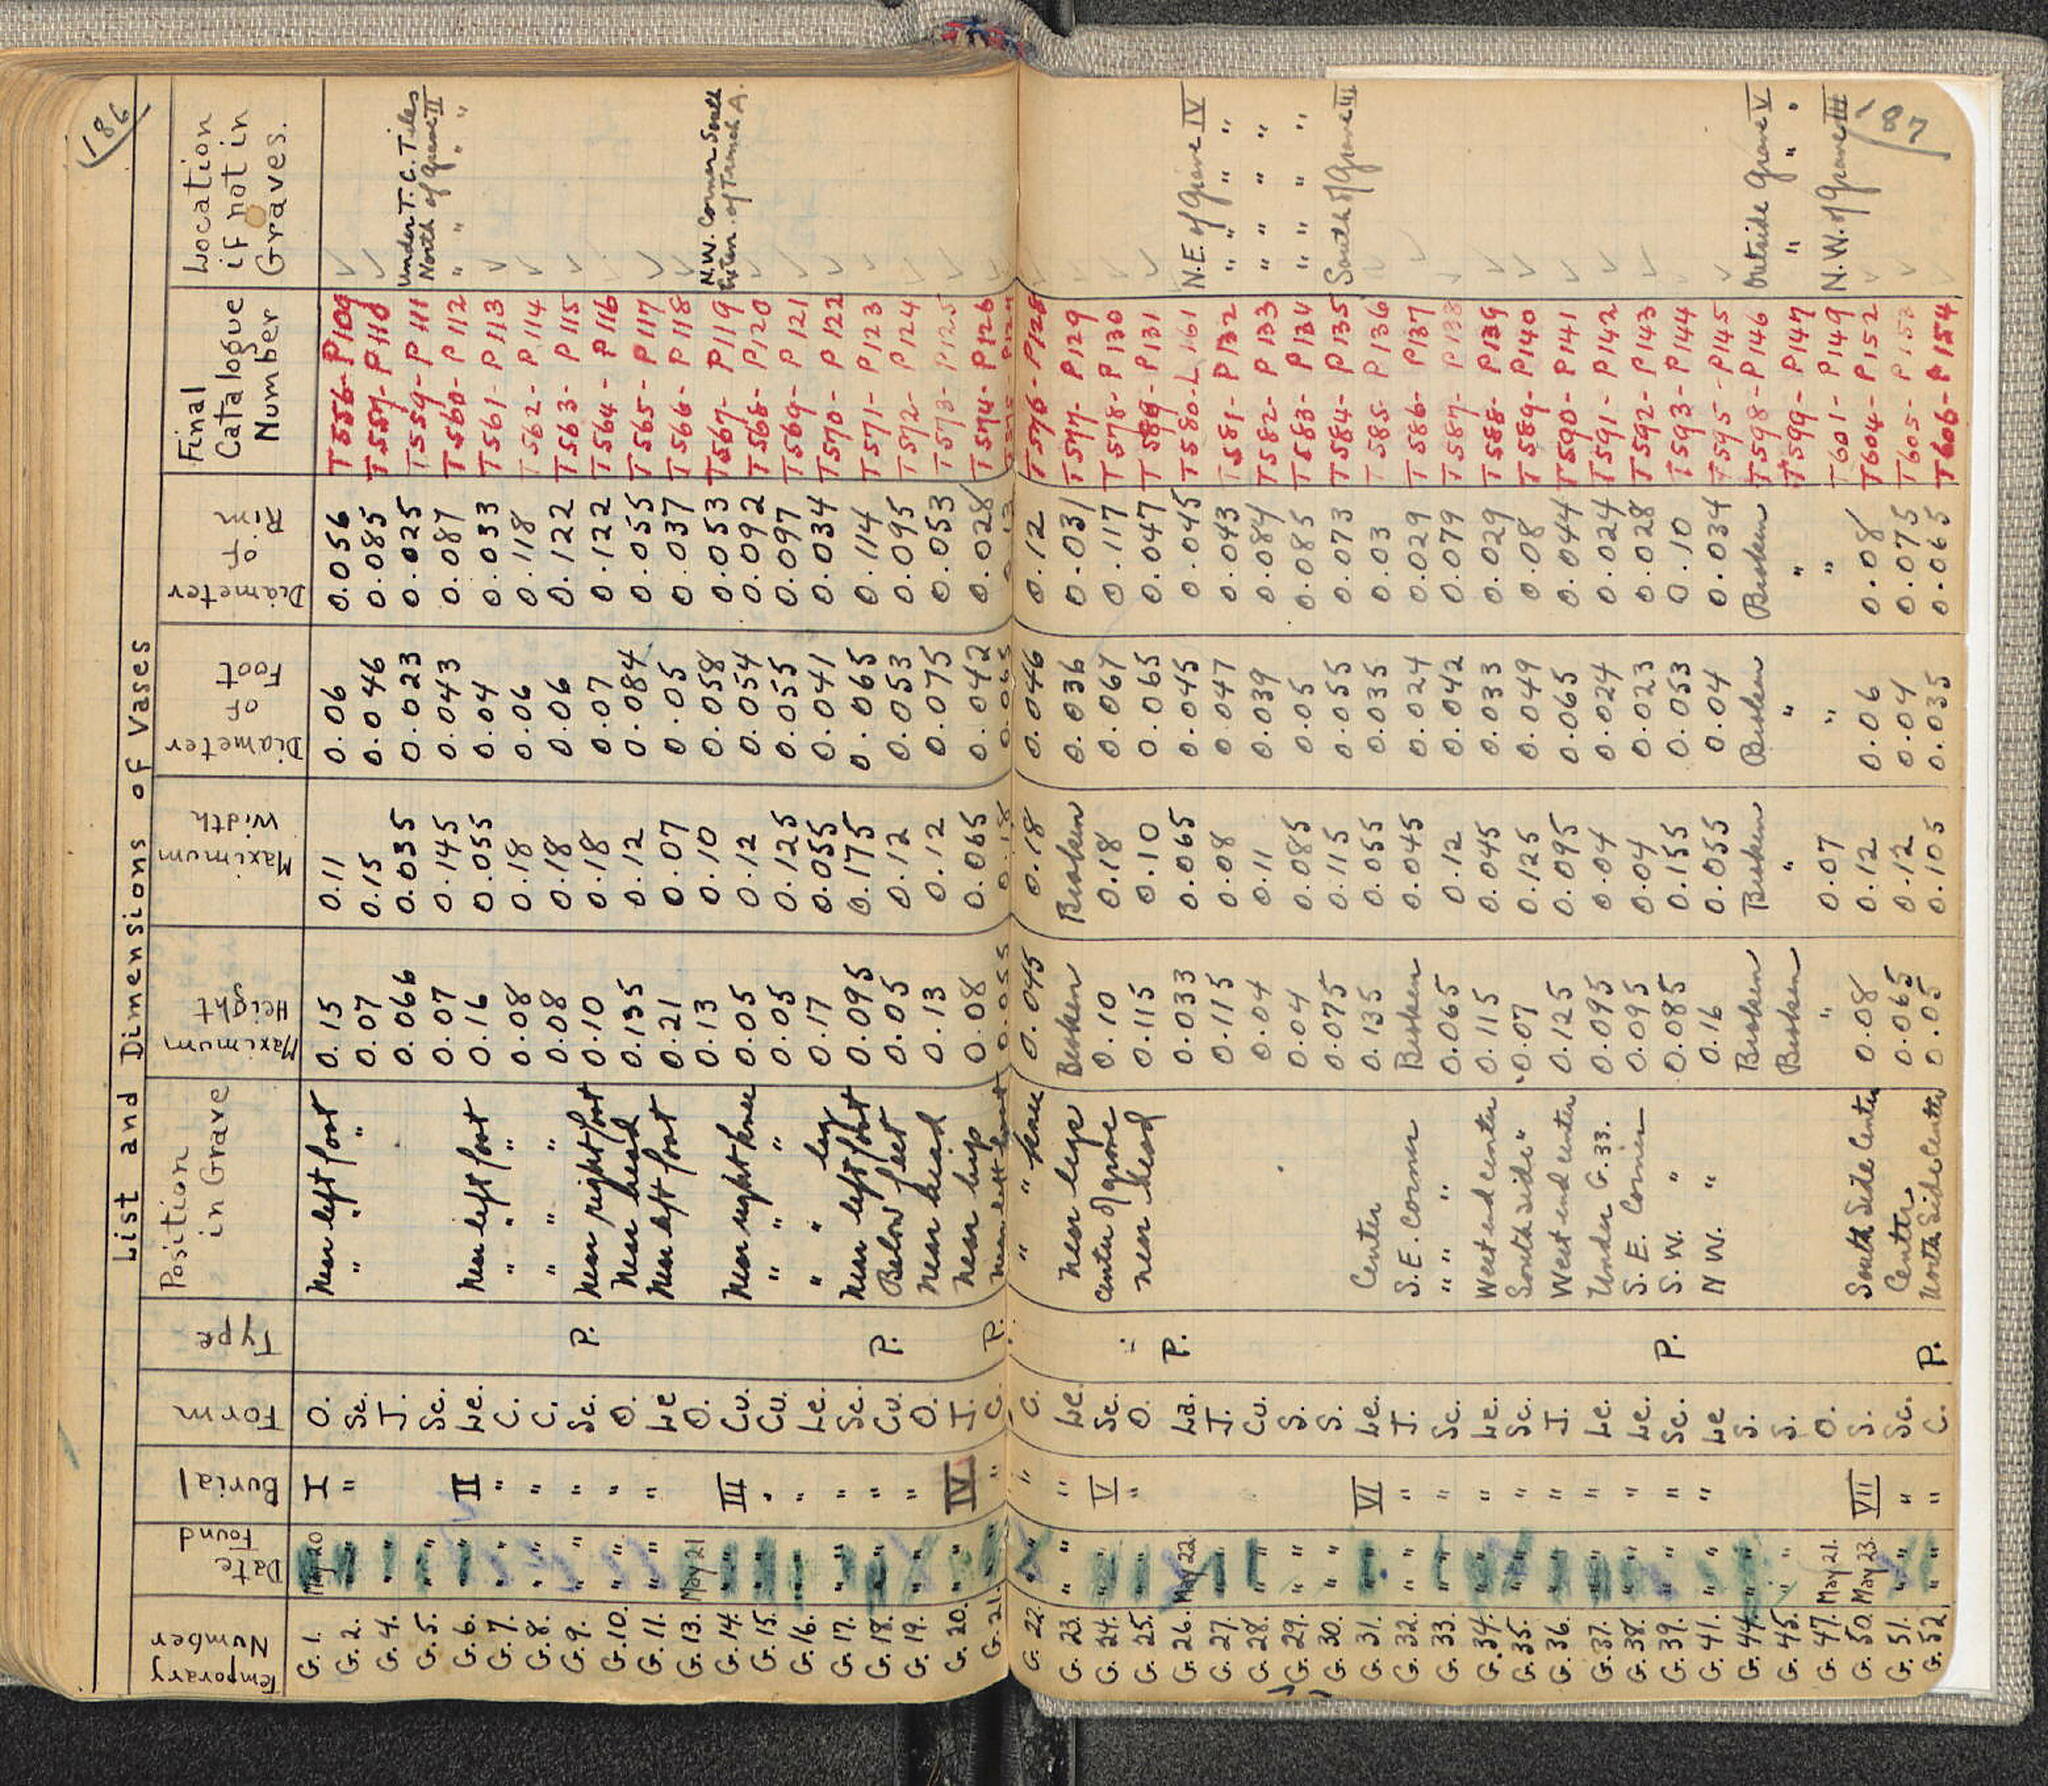 186
List and Dimensions of Vases
Temporary Number | Date Found | Burial | Form | Type | Position in Grave | Maximum Height | Maximum Width | Diameter of Foot | Diameter of Rim | Final Catalogue Number | Location if not in Graves.
G. 1. May 20 I O. Near left foot 0.15 0.11 0.06 0.056 T556 - P109 ✓
G. 2. " " Sc. " " " 0.07 0.15 0.046 0.085 T557 - P110 ✓
G. 4. " J. 0.066 0.035 0.023 0.025 T559 - P111 Under T.C. Tiles North of Grave II
G. 5. " Sc. 0.07 0.145 0.043 0.087 T560 - P112 " " " "
G. 6. " II Le. Near left foot 0.16 0.055 0.04 0.033 T561 - P113 ✓
G. 7. " " C. " " " 0.08 0.18 0.06 0.118 T562 - P114 ✓
G. 8. " " C. " " " 0.08 0.18 0.06 0.122 T563 - P115 ✓
G. 9. " " Sc. P. Near right foot 0.10 0.18 0.07 0.122 T564 - P116 ✓
G. 10. " " O. Near head 0.135 0.12 0.084 0.055 T565 - P117 ✓
G. 11. " " Le Near left foot 0.21 0.07 0.05 0.037 T566 - P118 ✓
G. 13. May 21 O. 0.13 0.10 0.058 0.053 T567 - P119 N.W. Corner South Exten. of Trench A.
G. 14. " III Cu. Near right knee 0.05 0.12 0.054 0.092 T568 - P120 ✓
G. 15. " " Cu. " " " 0.05 0.125 0.055 0.097 T569 - P121 ✓
G. 16. " " Le. " " leg 0.17 0.055 0.041 0.034 T570 - P122 ✓
G. 17. " " Sc. Near left foot 0.095 0.175 0.065 0.114 T571 - P123 ✓
G. 18. " " Cu. P. Below feet 0.05 0.12 0.053 0.095 T572 - P124 ✓
G. 19. " " O. Near head 0.13 0.12 0.075 0.053 T573 - P125 ✓
G. 20. " IV J. Near hip 0.08 0.065 0.042 0.028 T574 - P126 ✓
G. 21. " " C. P. Near left 0.055 0.18 0.065 0.13
187
G. 22. " " C. " " " knee 0.045 0.18 0.046 0.12 T576 - P128 ✓
G. 23. " " Le. Near legs Broken Broken 0.036 0.031 T577 - P129 ✓
G. 24. " V Sc. center of grave 0.10 0.18 0.067 0.117 T578 - P130 ✓
G. 25. " " O. " near head 0.115 0.10 0.065 0.047 T579 - P131 ✓
G. 26. May 22. La. P. 0.033 0.065 0.045 0.045 T580 - L161 N.E. of Grave IV
G. 27. " J. 0.115 0.08 0.047 0.043 T581 - P132 " " " "
G. 28. " Cu. 0.04 0.11 0.039 0.084 T582 - P133 " " " "
G. 29. " S. 0.04 0.085 0.05 0.085 T583 - P134 " " " "
G. 30. " S. 0.075 0.115 0.055 0.073 T584 - P135 South of Grave III
G. 31. " VI Le. Center 0.135 0.055 0.035 0.03 T585 - P136 ✓
G. 32. " " J. S.E. Corner Broken 0.045 0.024 0.029 T586 - P137 ✓
G. 33. " " Sc. " " " 0.065 0.12 0.042 0.079 T587 - P138 ✓
G. 34. " " Le. West end center 0.115 0.045 0.033 0.029 T588 - P139 ✓
G. 35. " " Sc. South side " 0.07 0.125 0.049 0.08 T589 - P140 ✓
G. 36. " " J. West end center 0.125 0.095 0.065 0.044 T590 - P141 ✓
G. 37. " " Le. Under G.33. 0.095 0.04 0.024 0.024 T591 - P142 ✓
G. 38. " " Le. S.E. Corner 0.095 0.04 0.023 0.028 T592 - P143 ✓
G. 39. " " Sc. P. S.W. " 0.085 0.155 0.053 0.10 T593 - P144 ✓
G. 41. " " Le N W. " 0.16 0.055 0.04 0.034 T595 - P145 ✓
G. 44. " S. Broken Broken Broken Broken T598 - P146 Outside Grave V
G. 45. " S. Broken " " " T599 - P147 " " "
G. 47. May 21. O. " 0.07 " " T601 - P149 N.W. of Grave III
G. 50. May 23. VII S. South Side Center 0.08 0.12 0.06 0.08 T604 - P152 ✓
G. 51. " " Sc. Center 0.065 0.12 0.04 0.075 T605 - P153 ✓
G. 52. " " C. P. North Side Center 0.05 0.105 0.035 0.065 T606 - P154 ✓